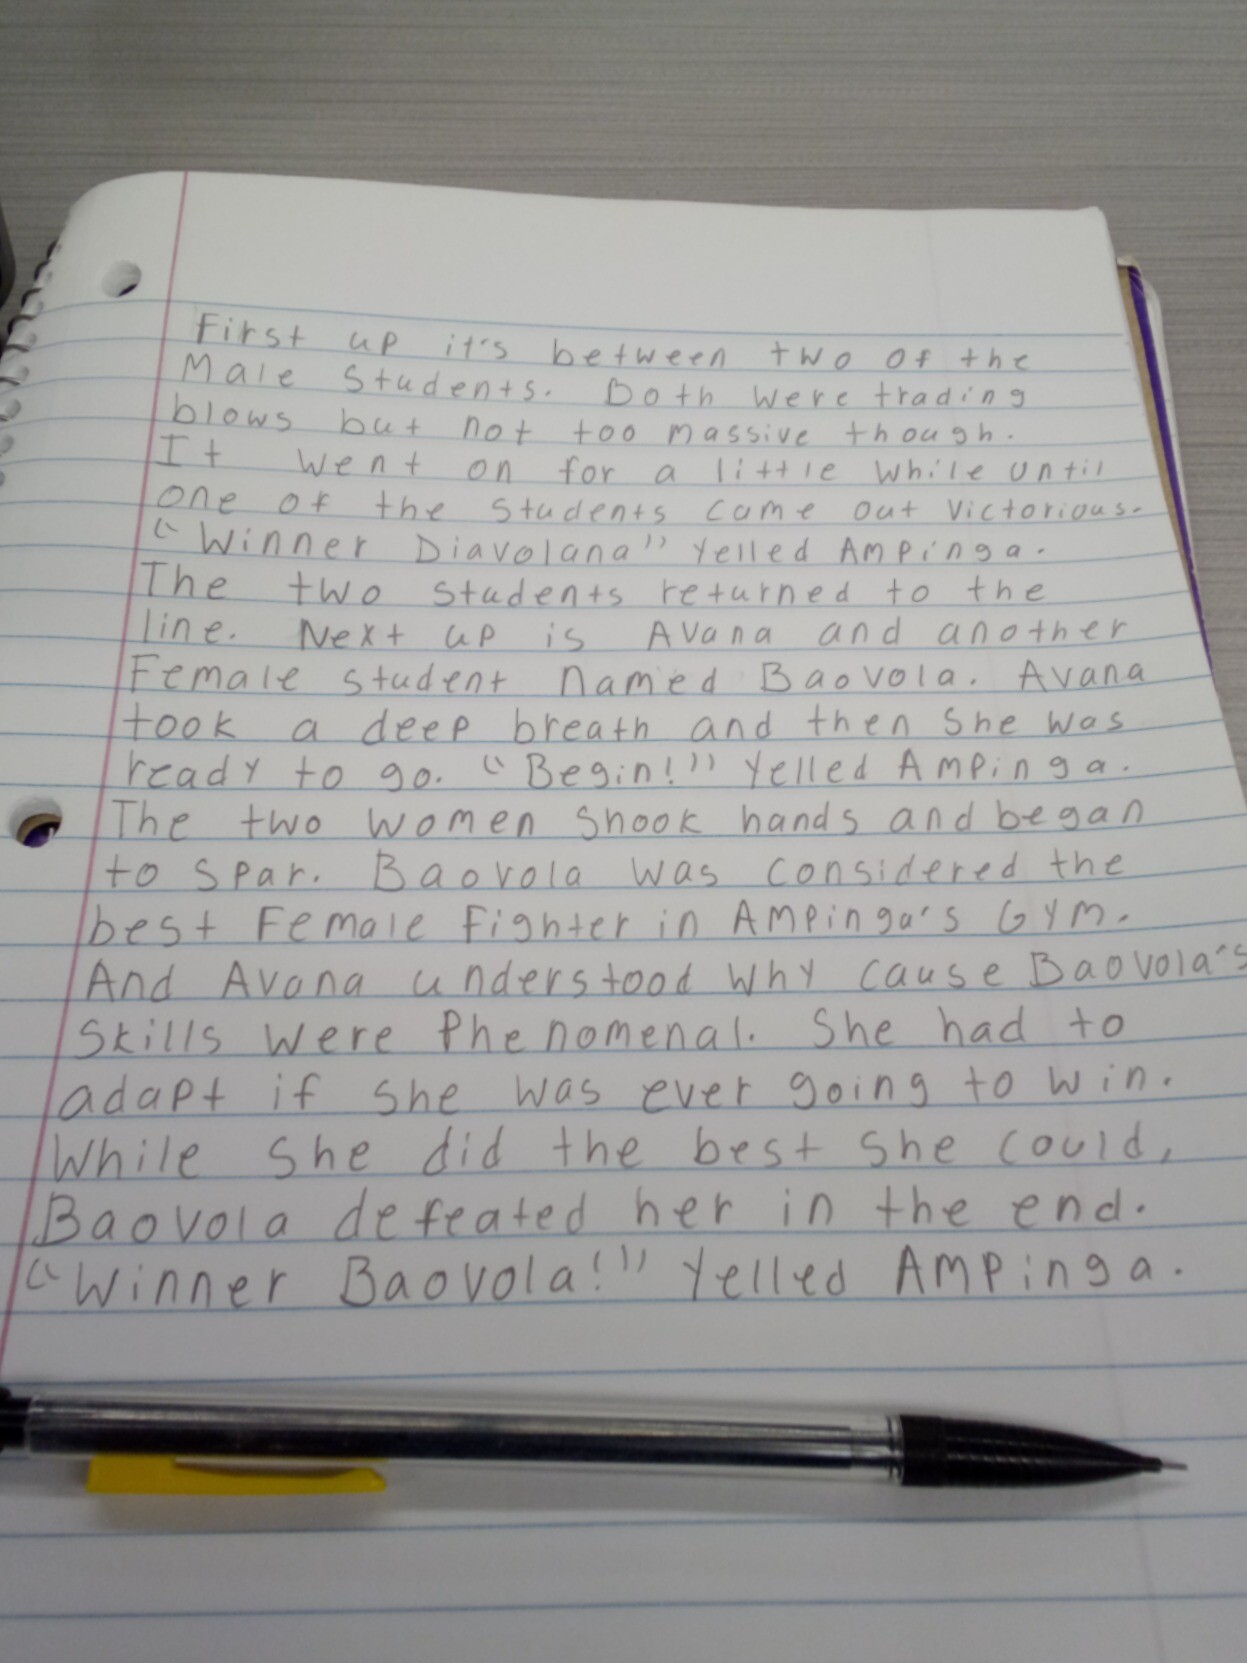 First up it's between two of the
Male students. Both were trading
blows but not too massive though.
It went on for a little while until
one of the students came out victorious.
"Winner Diavolana" Yelled Ampinga.
The two students returned to the
line. Next up is Avana and another
Female student named Baovola. Avana
took a deep breath and then she was
ready to go. "Begin!" Yelled Ampinga.
The two women shook hands and began
to spar. Baovola was considered the
best Female Fighter in Ampinga's Gym.
And Avana understood why cause Baovola's
skills were phenomenal. She had to
adapt if she was ever going to win.
While she did the best she could,
Baovola defeated her in the end.
"Winner Baovola!" Yelled Ampinga.